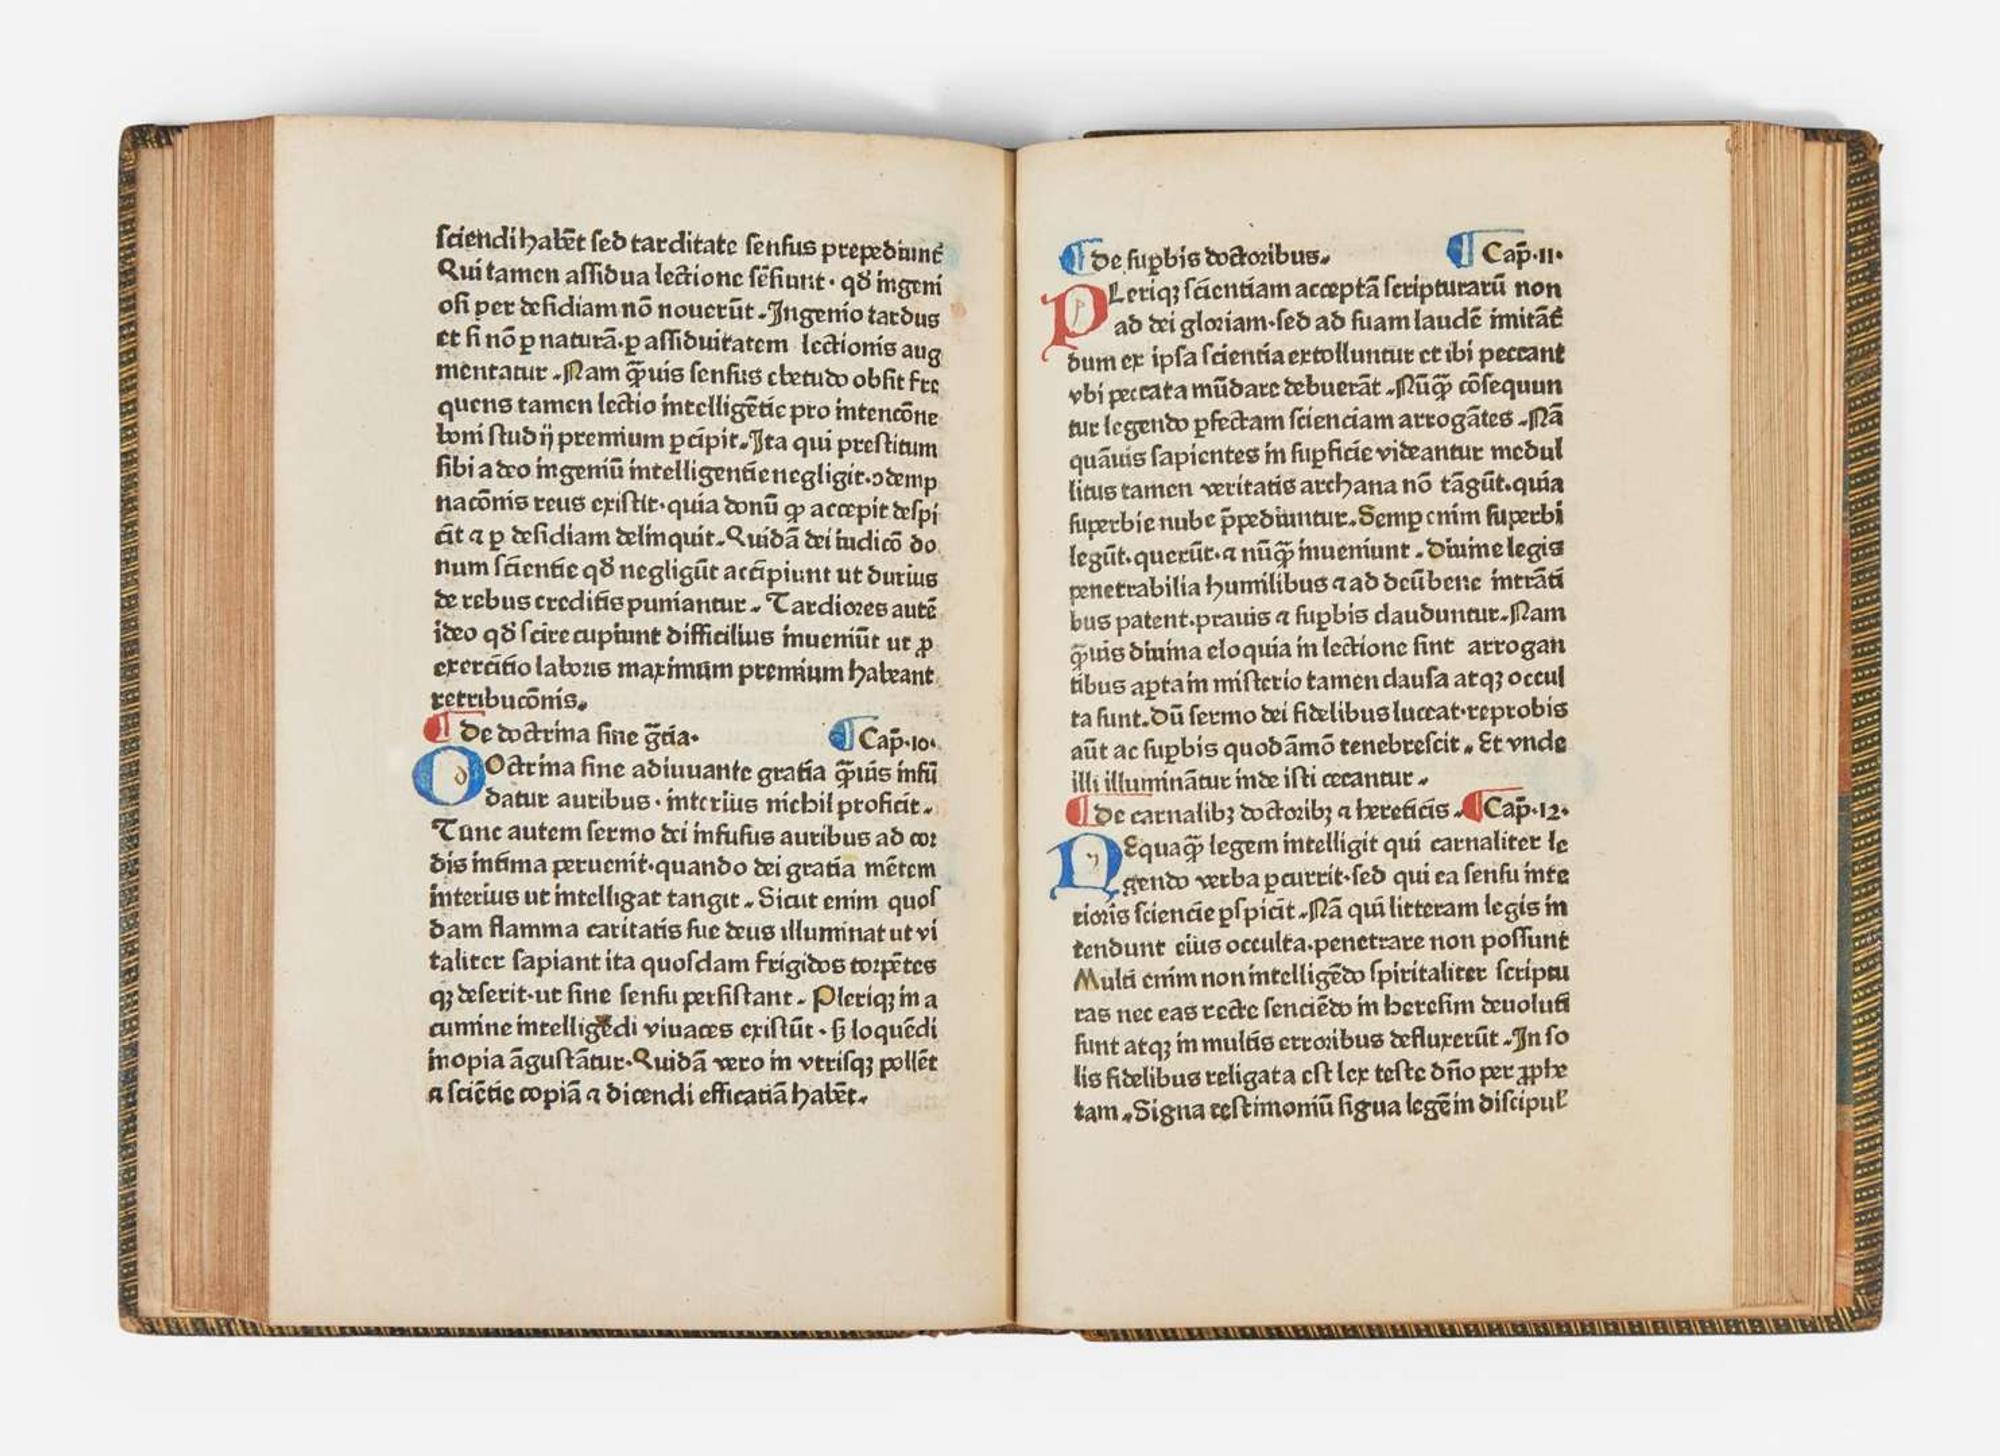 sciendi habēt sed tarditate sensus prepediunt̄
Qui tamen assidua lectione sēsiunt · qd̄ ingeni
osi per desidiam nō nouerūt . Ingenio tardus
et si nō ꝑ naturā · ꝑ assiduitatem lectionis aug
mentatur . Nam ꝙ̄uis sensus ebetudo obsit fre
quens tamen lectio intelligētie pro intencōne
boni studij premium ꝑcipit . Ita qui prestitum
sibi a deo ingeniū intelligentie negligit · ↄdemp
nacōnis reus existit · quia donū ꝙ accepit despi
cit ⁊ ꝑ desidiam delinquit . Quidā dei iudicō do
num scientie qd̄ negligūt accipiunt ut durius
de rebus creditis puniantur . Tardiores autē
ideo qd̄ scire cupiunt difficilius inueniūt ut ꝓ
exercitio laboris maximum premium habeant
retribucōnis .
¶ De doctrina sine gr̄cia · ¶ Cap̄ · 10 ·
DOctrina sine adiuuante gratia ꝙ̄uis infū
datur auribus · interius nichil proficit .
Tunc autem sermo dei infusus auribus ad cor
dis intima peruenit · quando dei gratia mētem
interius ut intelligat tangit . Sicut enim quos
dam flamma caritatis sue deus illuminat ut vi
taliter sapiant ita quosdam frigidos torpētes
qꝫ deserit · ut sine sensu persistant . Pleriqꝫ in a
cumine intelligēdi viuaces existūt · sꝫ loquēdi
inopia āgustātur · Quidā vero in vtrisqꝫ pollēt
⁊ sciētie copiā ⁊ dicendi efficatiā habēt .
¶ De suꝑbis doctoribus . ¶ Cap̄ · 11 ·
PLeriqꝫ scientiam acceptā scripturarū non
ad dei gloriam · sed ad suam laudē imitāt̄
dum ex ipsa scientia extolluntur et ibi peccant
vbi peccata mūdare debuerāt . Nūꝙ̄ cōsequun
tur legendo ꝑfectam scienciam arrogātes . Nā
quāuis sapientes in suꝑficie videantur medul
litus tamen veritatis archana nō tāgūt · quia
superbie nube p̄pediuntur . Semꝑ enim superbi
legūt · querūt · ⁊ nūꝙ̄ inueniunt . Diuine legis
penetrabilia humilibus ⁊ ad deū bene intrāti
bus patent · prauis ⁊ suꝑbis clauduntur . Nam
ꝙ̄uis diuina eloquia in lectione sint arrogan
tibus apta in misterio tamen clausa atqꝫ occul
ta sunt . Dū sermo dei fidelibus luceat · reprobis
aūt ac suꝑbis quodāmō tenebrescit . Et vnde
illi illuminātur inde isti cecantur .
¶ De carnalibꝫ doctoribꝫ ⁊ hereticis . ¶ Cap̄ · 12 ·
NEquaꝙ̄ legem intelligit qui carnaliter le
gendo verba ꝑcurrit · sed qui ea sensu inte
rioris sciencie ꝑspicit . Nā qui litteram legis in
tendunt eius occulta · penetrare non possunt
Multi enim non intelligēdo spiritaliter scriptu
ras nec eas recte senciēdo in heresim deuoluti
sunt atqꝫ in multis erroribus defluxerūt . In so
lis fidelibus religata est lex teste dn̄o per ꝓphe
tam . Signa testimoniū signa legē in discipul̄